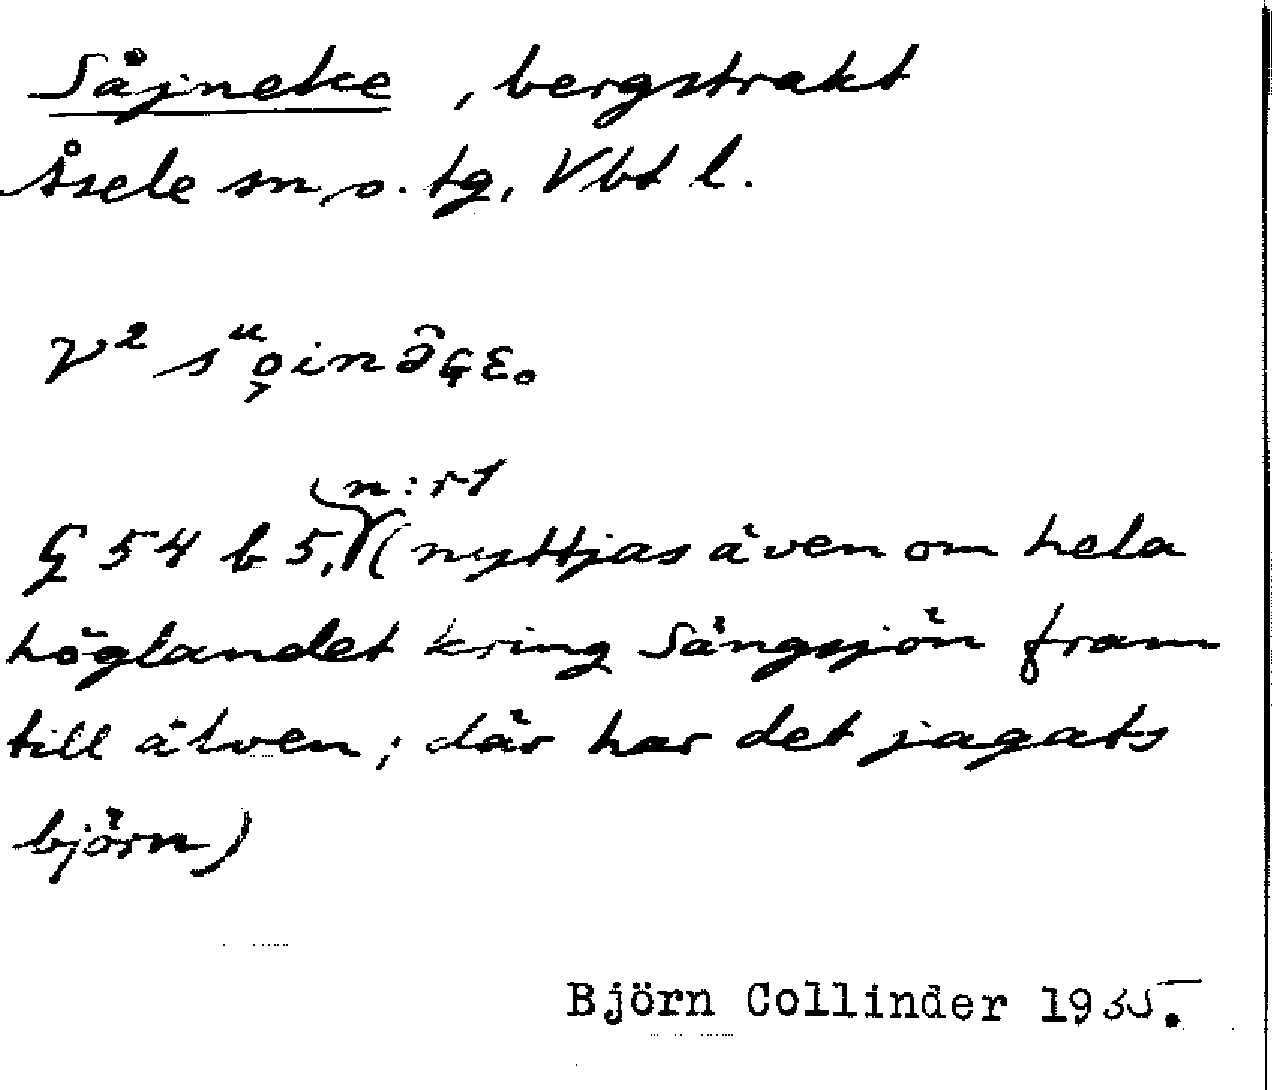 Såjneke, bergstrakt
Åsele sn, o. tg, Vbt l.
V² sᵘo̜inə̂Gɛ.
n:r 1
§ 54 b 5, (nyttjas även om hela
höglandet kring Sängsjön fram
till älven; där har det jagats
björn)
Björn Collinder 1935.